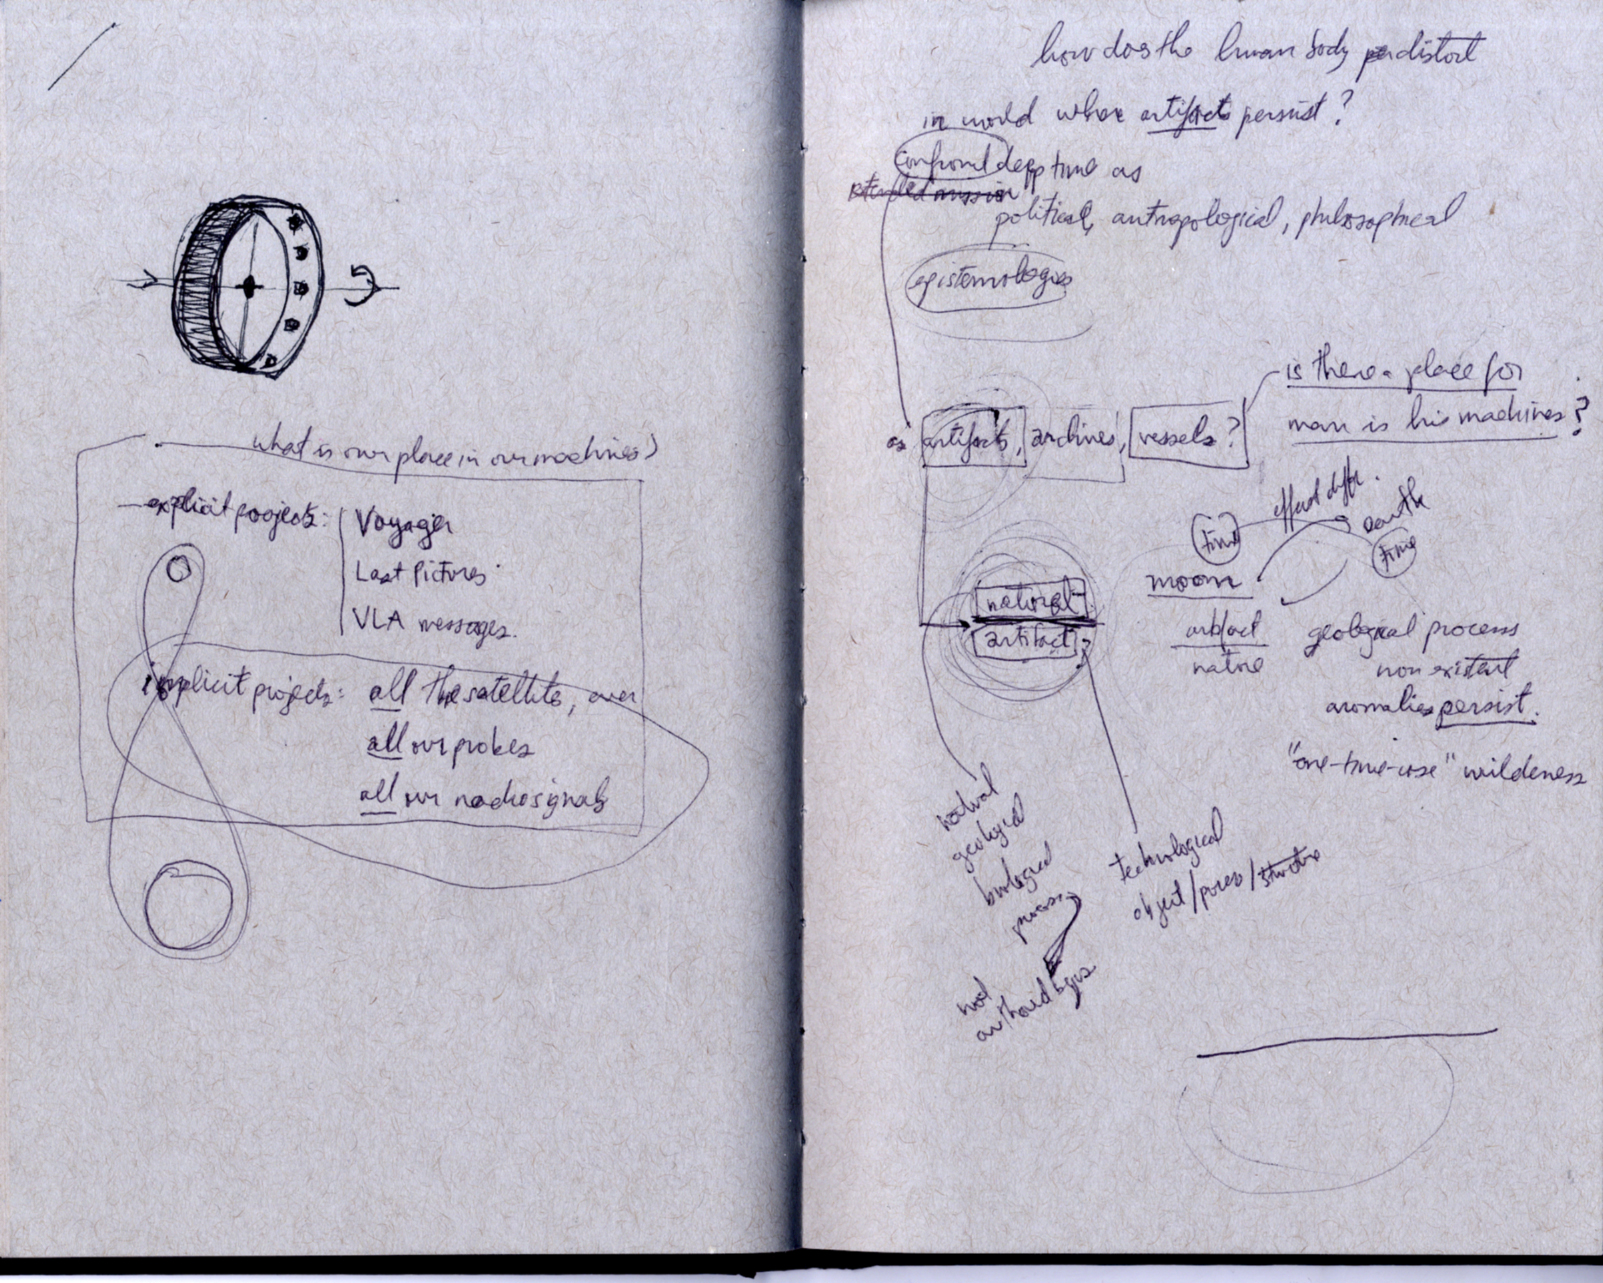 what is our place in our machines?
explicit projects:
Voyager
Last Pictures
VLA messages.
implicit projects: all the satellites, ever
all our probes
all our radiosignals
how does the human body distort
in world where artifacts persist?
confront deep time as
political, antropological, philosophical
epistemologies
as artifacts, archives, vessels?
is there a place for
man is his machines?
effect diff.
time
earth
time
moon
natural
artifact?
artifact
nature
geological process
non existent
anomalies persist.
"one-time-use" wildeness
natural
geological
biological
process
technological
object/process/structure
not